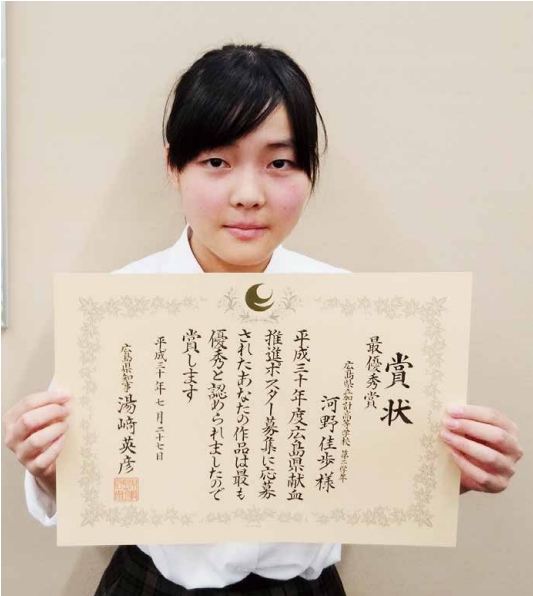 賞状
最優秀賞
広島県立加計高等学校 第二学年
河野佳歩様
平成三十年度広島県献血
推進ポスター募集に応募
されたあなたの作品は最も
優秀と認められましたので
賞します
平成三十年七月二十七日
広島県知事 湯﨑英彦